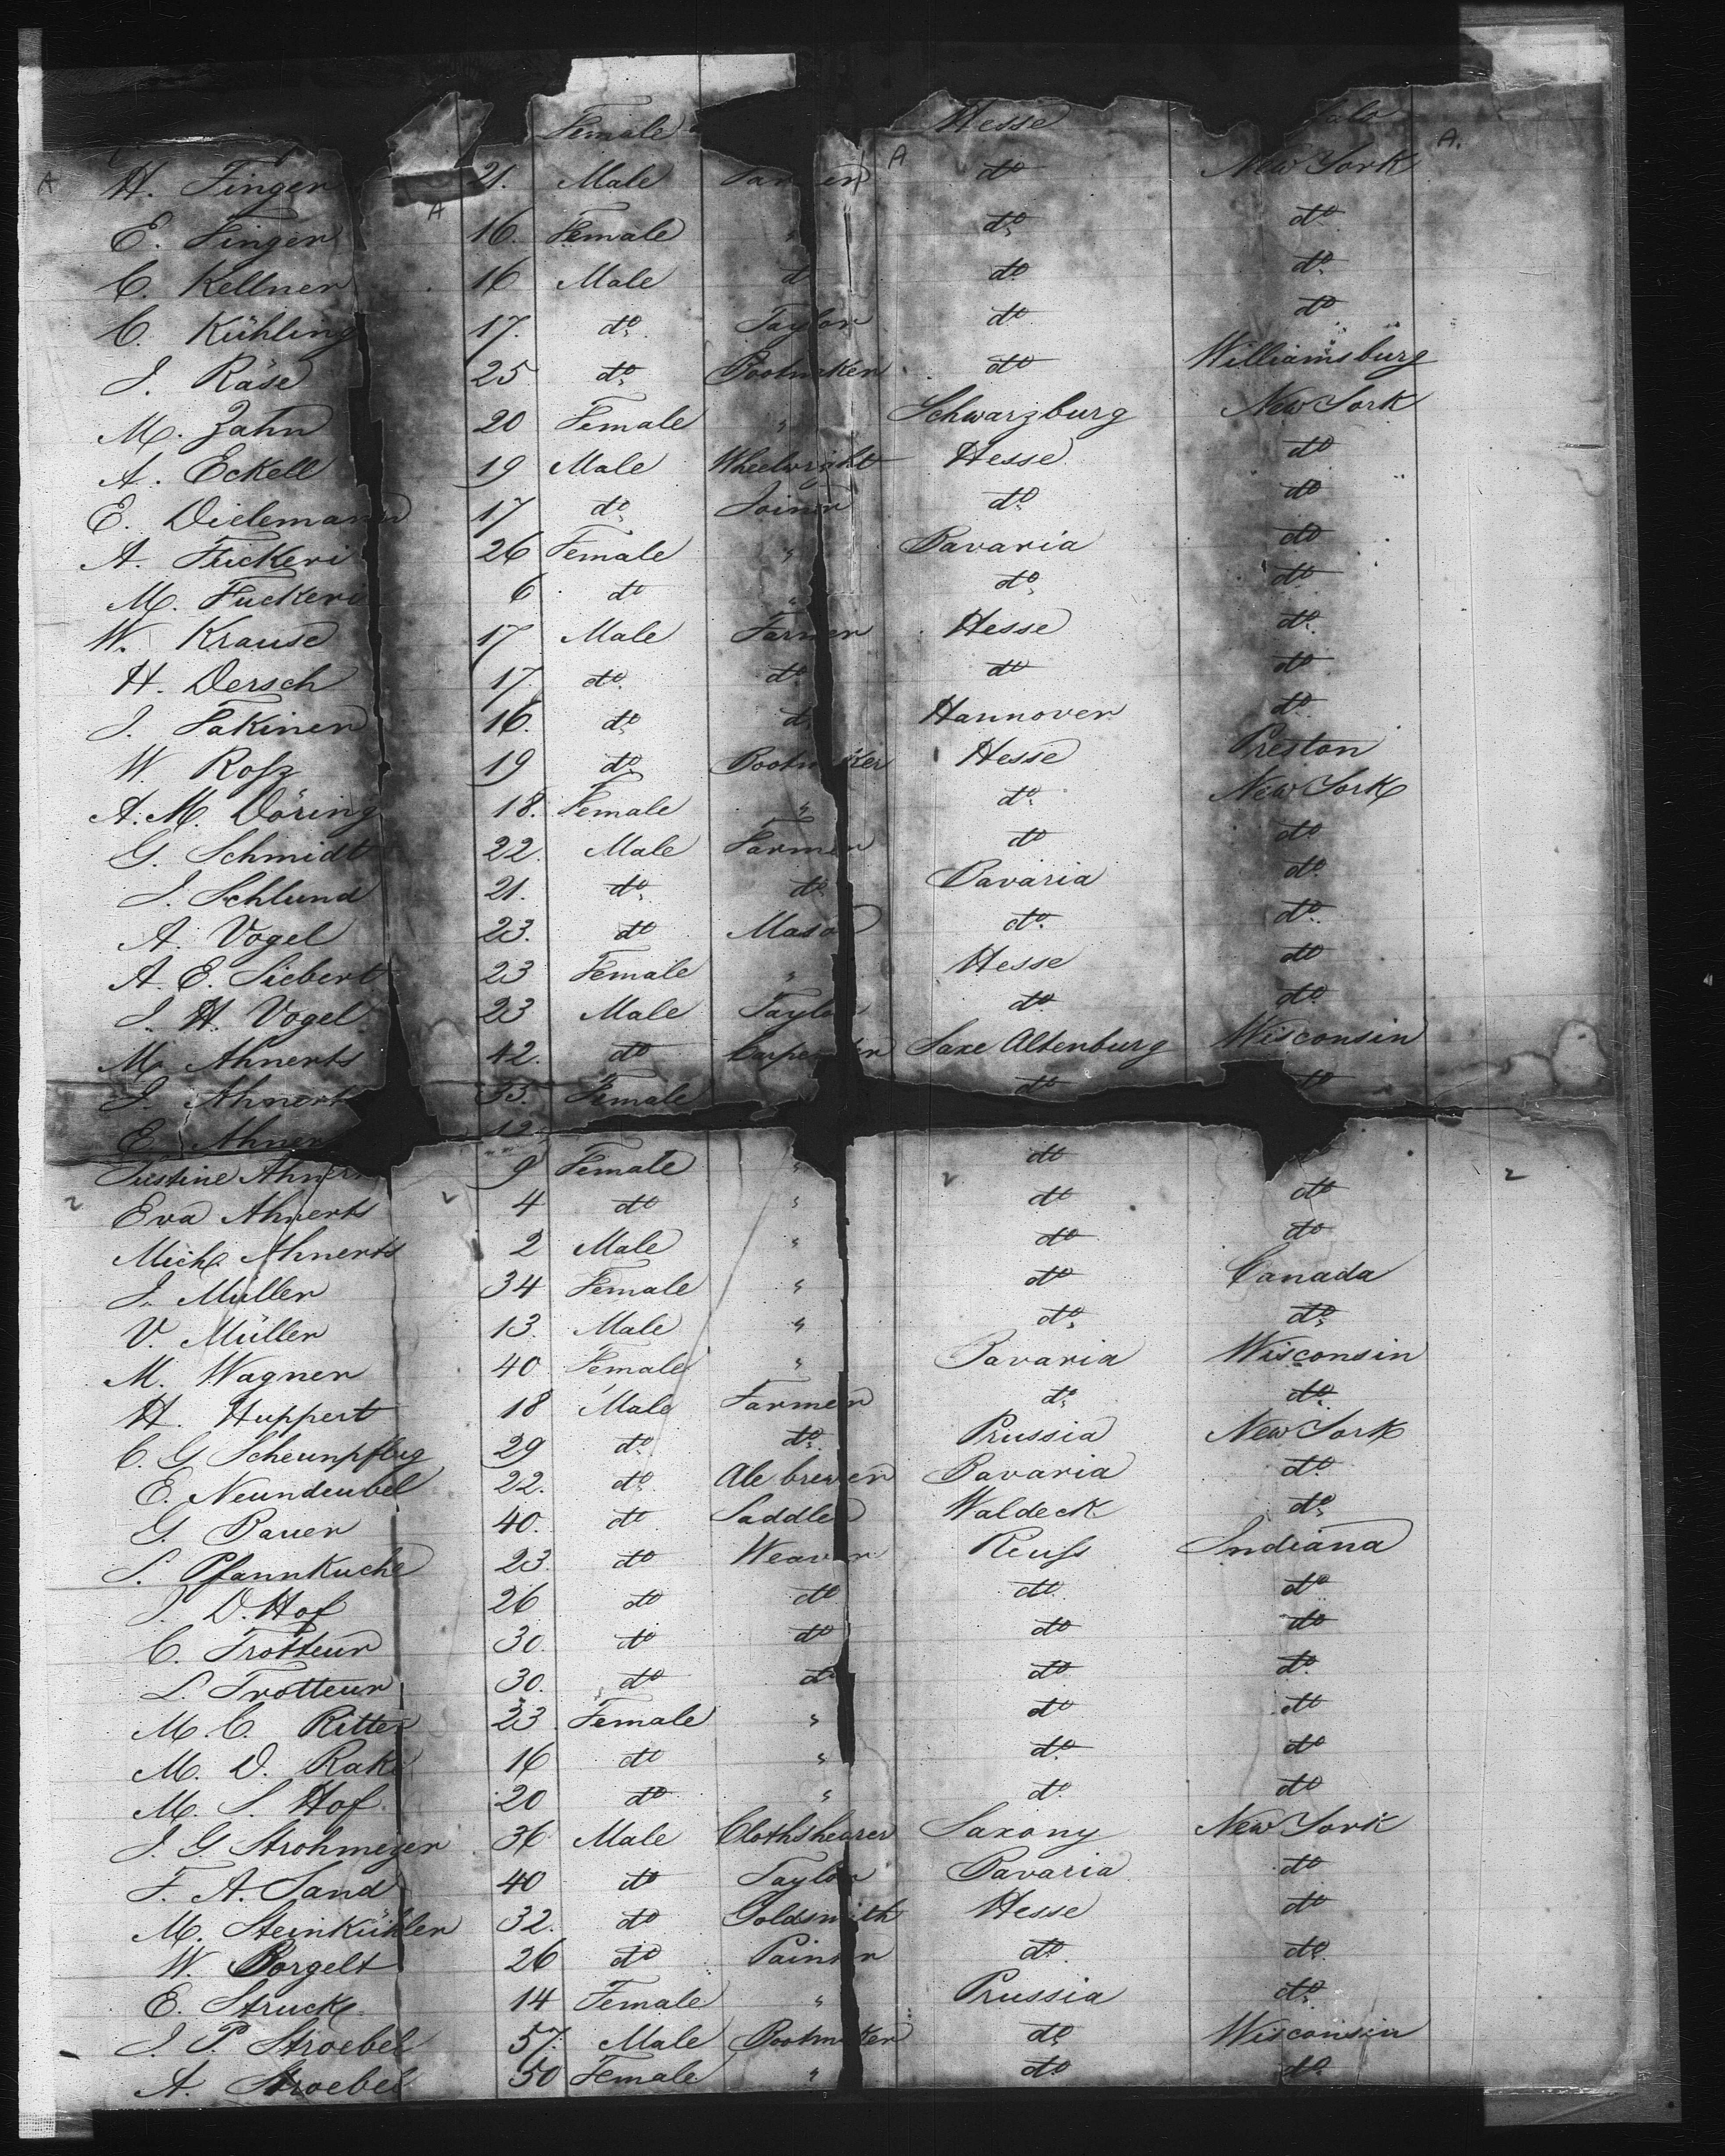 Female Hesse
H. Finger 21. Male do New York
E. Finger 16. Female " do do
C. Kellner 16 Male d do do
C. Kühling 17. do Taylor do do
J. Räse 25 do Bootmaker do Williamsburg
M. Zahn 20 Female " Schwarzburg New York
A. Eckell 19 Male Wheelwright Hesse do
E. Dielemann 17 do Joiner do do
A. Fückeri 26 Female " Bavaria do
M. Fuckeri 6 do " do do
W. Krause 17 Male Farmer Hesse do
H. Dersch 17. do do do do
J. Fakiner 16. do d Hannover do
W. Rosz 19 do Bootmaker Hesse Preston
A. M. Döring 18. Female " do New York
G. Schmidt 22. Male Farmer do do
J. Schlund 21. do do Bavaria do
A. Vogel 23. do Mason do do
A. E. Siebert 23 Female " Hesse do
J. H. Vogel 23 Male Taylor do do
M. Ahnerts 42. do Carpenter Saxe Altenburg Wisconsin
J. Ahnert 35. Female do do
E. Ahner 12
Justine Ahner 9 Female " do
Eva Ahnerts 4 do " do do
Mich. Ahnerts 2 Male " do do
J. Müller 34 Female " do Canada
V. Müller 13. Male " do do
M. Wagner 40 Female " Bavaria Wisconsin
H. Huppert 18 Male Farmer do do
C. G Scheunpflug 29 do do Prussia New York
E. Neundeubel 22. do Ale brewer Bavaria do
G. Bauer 40. do Saddler Waldeck do
S. Pfannkuche 23. do Weaver Reuss Indiana
J. D. Hof 26 do do do do
C. Trotteur 30. do do do do
L. Trotteur 30. do do do do
M. C. Ritter 23 Female " do do
M. D. Rak 16 do " do do
M. S. Hof 20 do " do do
J. G. Strohmeyer 36 Male Clothshearer Saxony New York
F. A. Sand 40 do Taylor Bavaria do
M. Steinkühler 32. do Goldsmith Hesse do
W. Borgelt 26 do Painter do do
E. Struck 14 Female " Prussia do
J. P. Stroebel 57. Male Bootmaker do Wisconsin
A. Stroebel 50 Female " do do